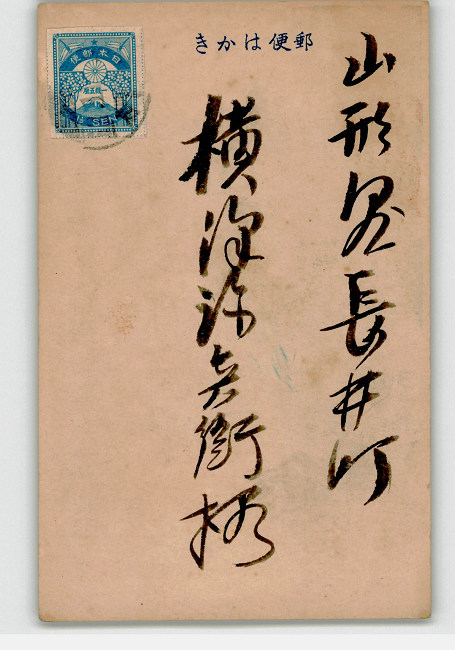 郵便はかき
山形県長井町
横沢弥兵衛様
日本郵便
一銭五厘
1½ SEN